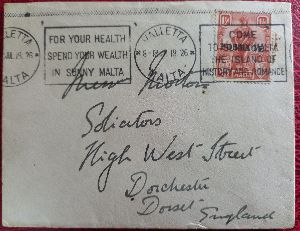 VALLETTA
JUL.19.26
MALTA
FOR YOUR HEALTH
SPEND YOUR WEALTH
IN SUNNY MALTA
VALLETTA
MALTA
COME
TO MALTA
THE ISLAND OF
HISTORY AND ROMANCE
Solicitors
High West Street
Dorchester
Dorset
England